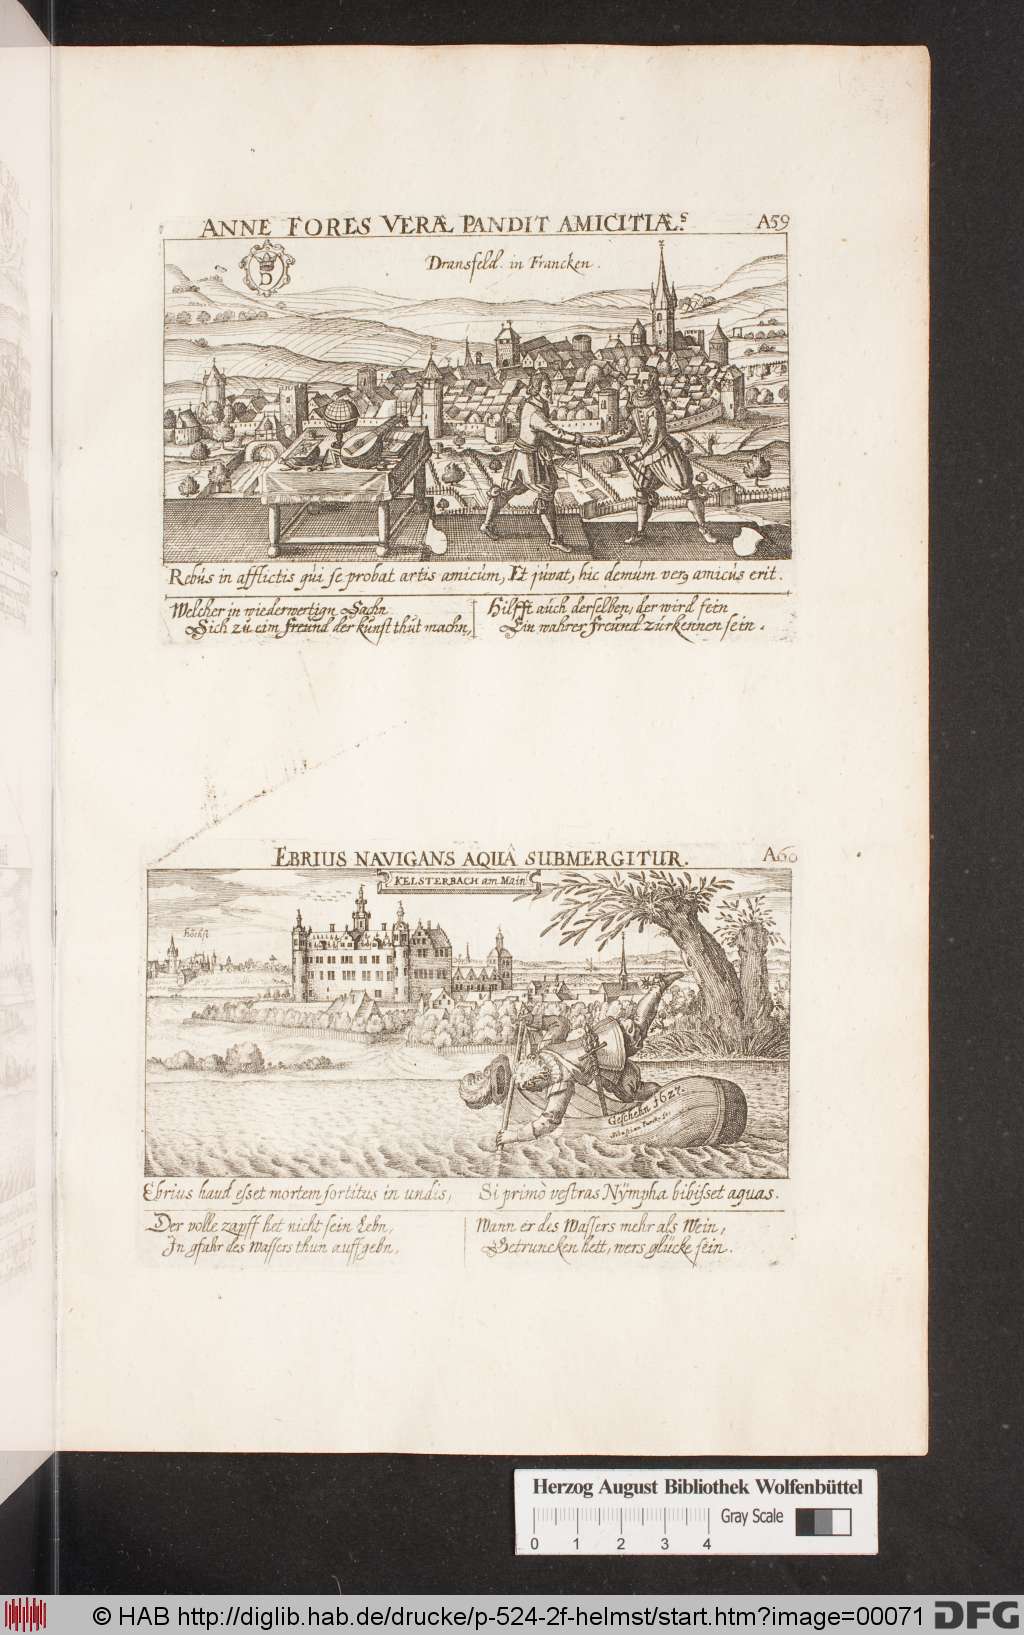 ANNE FORES VERÆ PANDIT AMICITIÆ.ˢ
A59
D
Dransfeld. in Francken.
Rebus in afflictis qui se probat artis amicum, Et juvat, hic demum verꝰ amicus erit.
Welcher in wiederwertign Sachn
Sich zu eim freund der kunst thut machn,
Hilfft auch derselben, der wird fein
Ein wahrer freund zurkennen sein.
EBRIUS NAVIGANS AQUÂ SUBMERGITUR.
A60
KELSTERBACH am Main
Höchst
Geschehn 1627.
Ebrius haud esset mortem sortitus in undis, Si primò vestras Nÿmpha bibisset aquas.
Der volle zapff het nicht sein Lebn,
In gfahr des Wassers thun auffgebn,
Wann er des Wassers mehr als Wein,
Getruncken hett, wers glücke sein.
Herzog August Bibliothek Wolfenbüttel
Gray Scale
0 1 2 3 4
© HAB http://diglib.hab.de/drucke/p-524-2f-helmst/start.htm?image=00071
DFG